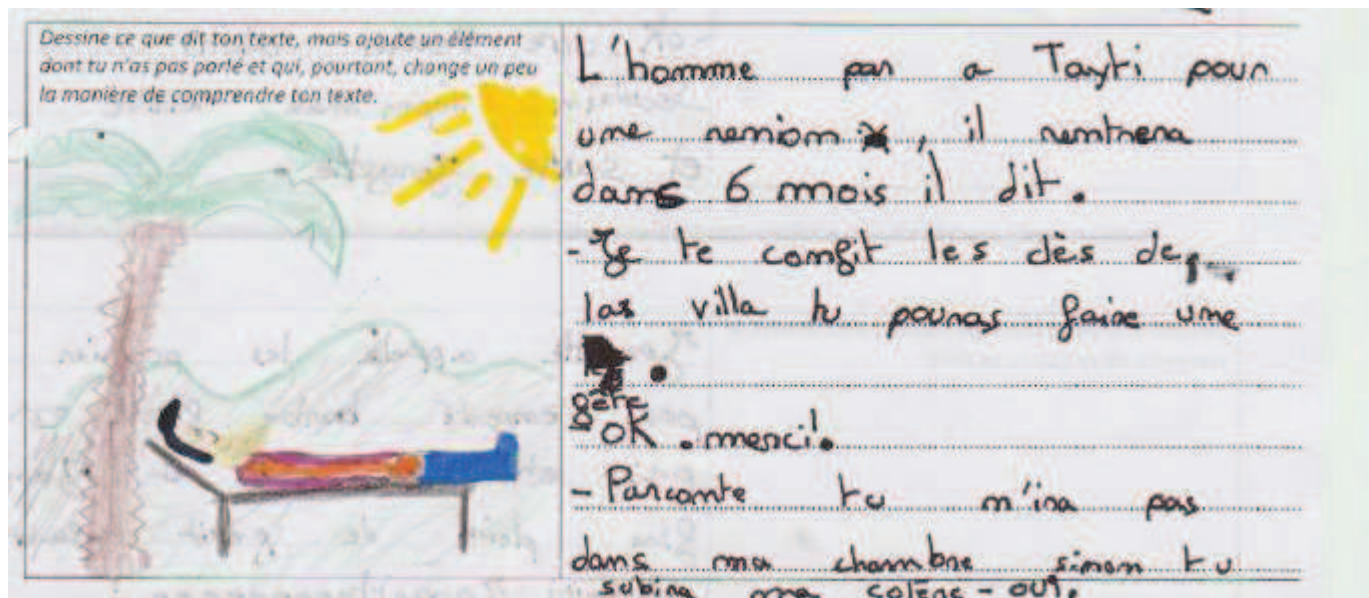 Dessine ce que dit ton texte, mais ajoute un élément
dont tu n'as pas parlé et qui, pourtant, change un peu
la manière de comprendre ton texte.
L'homme par a Tayti pour
une reniom , il rentrera
dans 6 mois il dit.
- Je te confit les clès de
las villa tu pouras faire une
fère
OK . merci.
- Parcomte tu m'ira pas
dans ma chambre sinon tu
subira ma colère - oui.